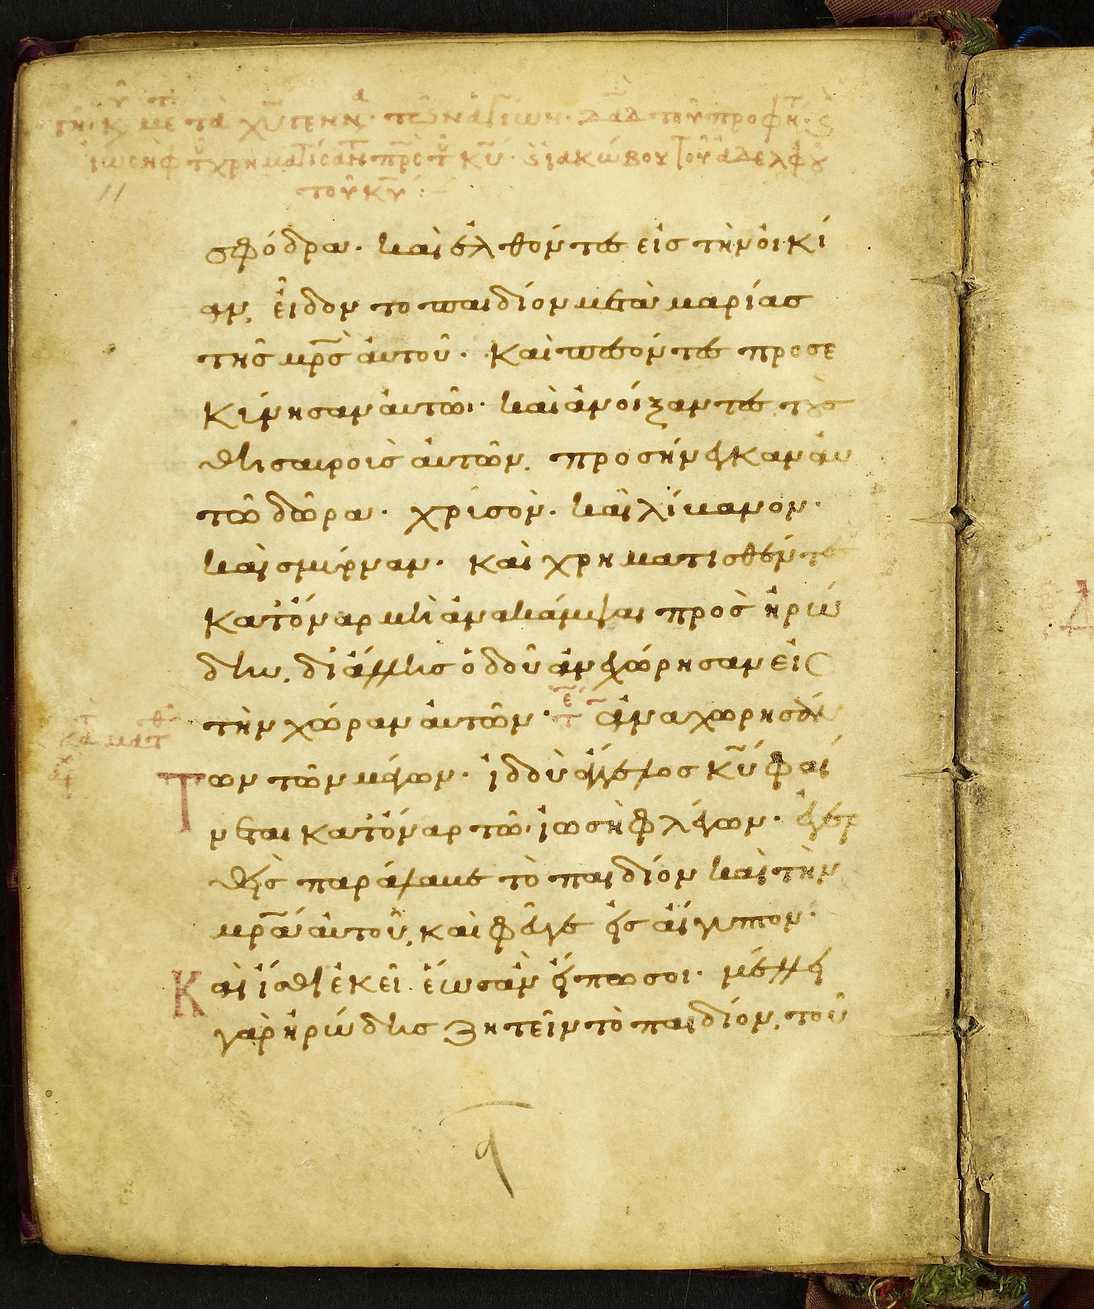 τῇ κυ μετὰ χῦ γενν τῶν ἁγίων δαδ τοῦ προφητ ς
ἰωσὴφ χρηματίσαντ πρς τοῦ κυ ς ἰακώβου τοῦ ἀδελφοῦ
τοῦ κυ :
σφόδρα · καὶ ἐλθόντες εἰς τὴν οἰκί
αν, εἶδον το παιδίον μετὰ μαρίας
τῆς μρς αὐτοῦ · καὶ πεσόντες προσε
κίνησαν αὐτῶ · καὶ ἀνοίξαντες τοὺς
θησαυροὺς αὐτῶν, προσήνεγκαν αὐ
τῶ δῶρα · χρισὸν · καὶ λίβανον ·
καὶ σμύρναν · καὶ χρηματισθέντες
κατ' ὄναρ μὴ ἀνακάμψαι πρὸς ἡρώ
δην, δι' ἄλλης ὁδοῦ ἀνεχώρησαν εἰς
τὴν χώραν αὐτῶν · ἀναχωρησάν
των τῶν μάγων · ἰδοὺ ἄγγελος κυ φαί
νεται κατ' ὄναρ τῶ ἰωσὴφ λέγων · ἐγερ
θεὶς παράλαβε τὸ παιδίον καὶ τὴν
μρα αὐτοῦ, καὶ φεῦγε εἰς αἴγυπτον ·
καὶ ἴσθι ἐκεῖ ἕως ἂν εἴπω σοι · μέλλει
γὰρ ἡρώδης ζητεῖν τὸ παιδίον, τοῦ